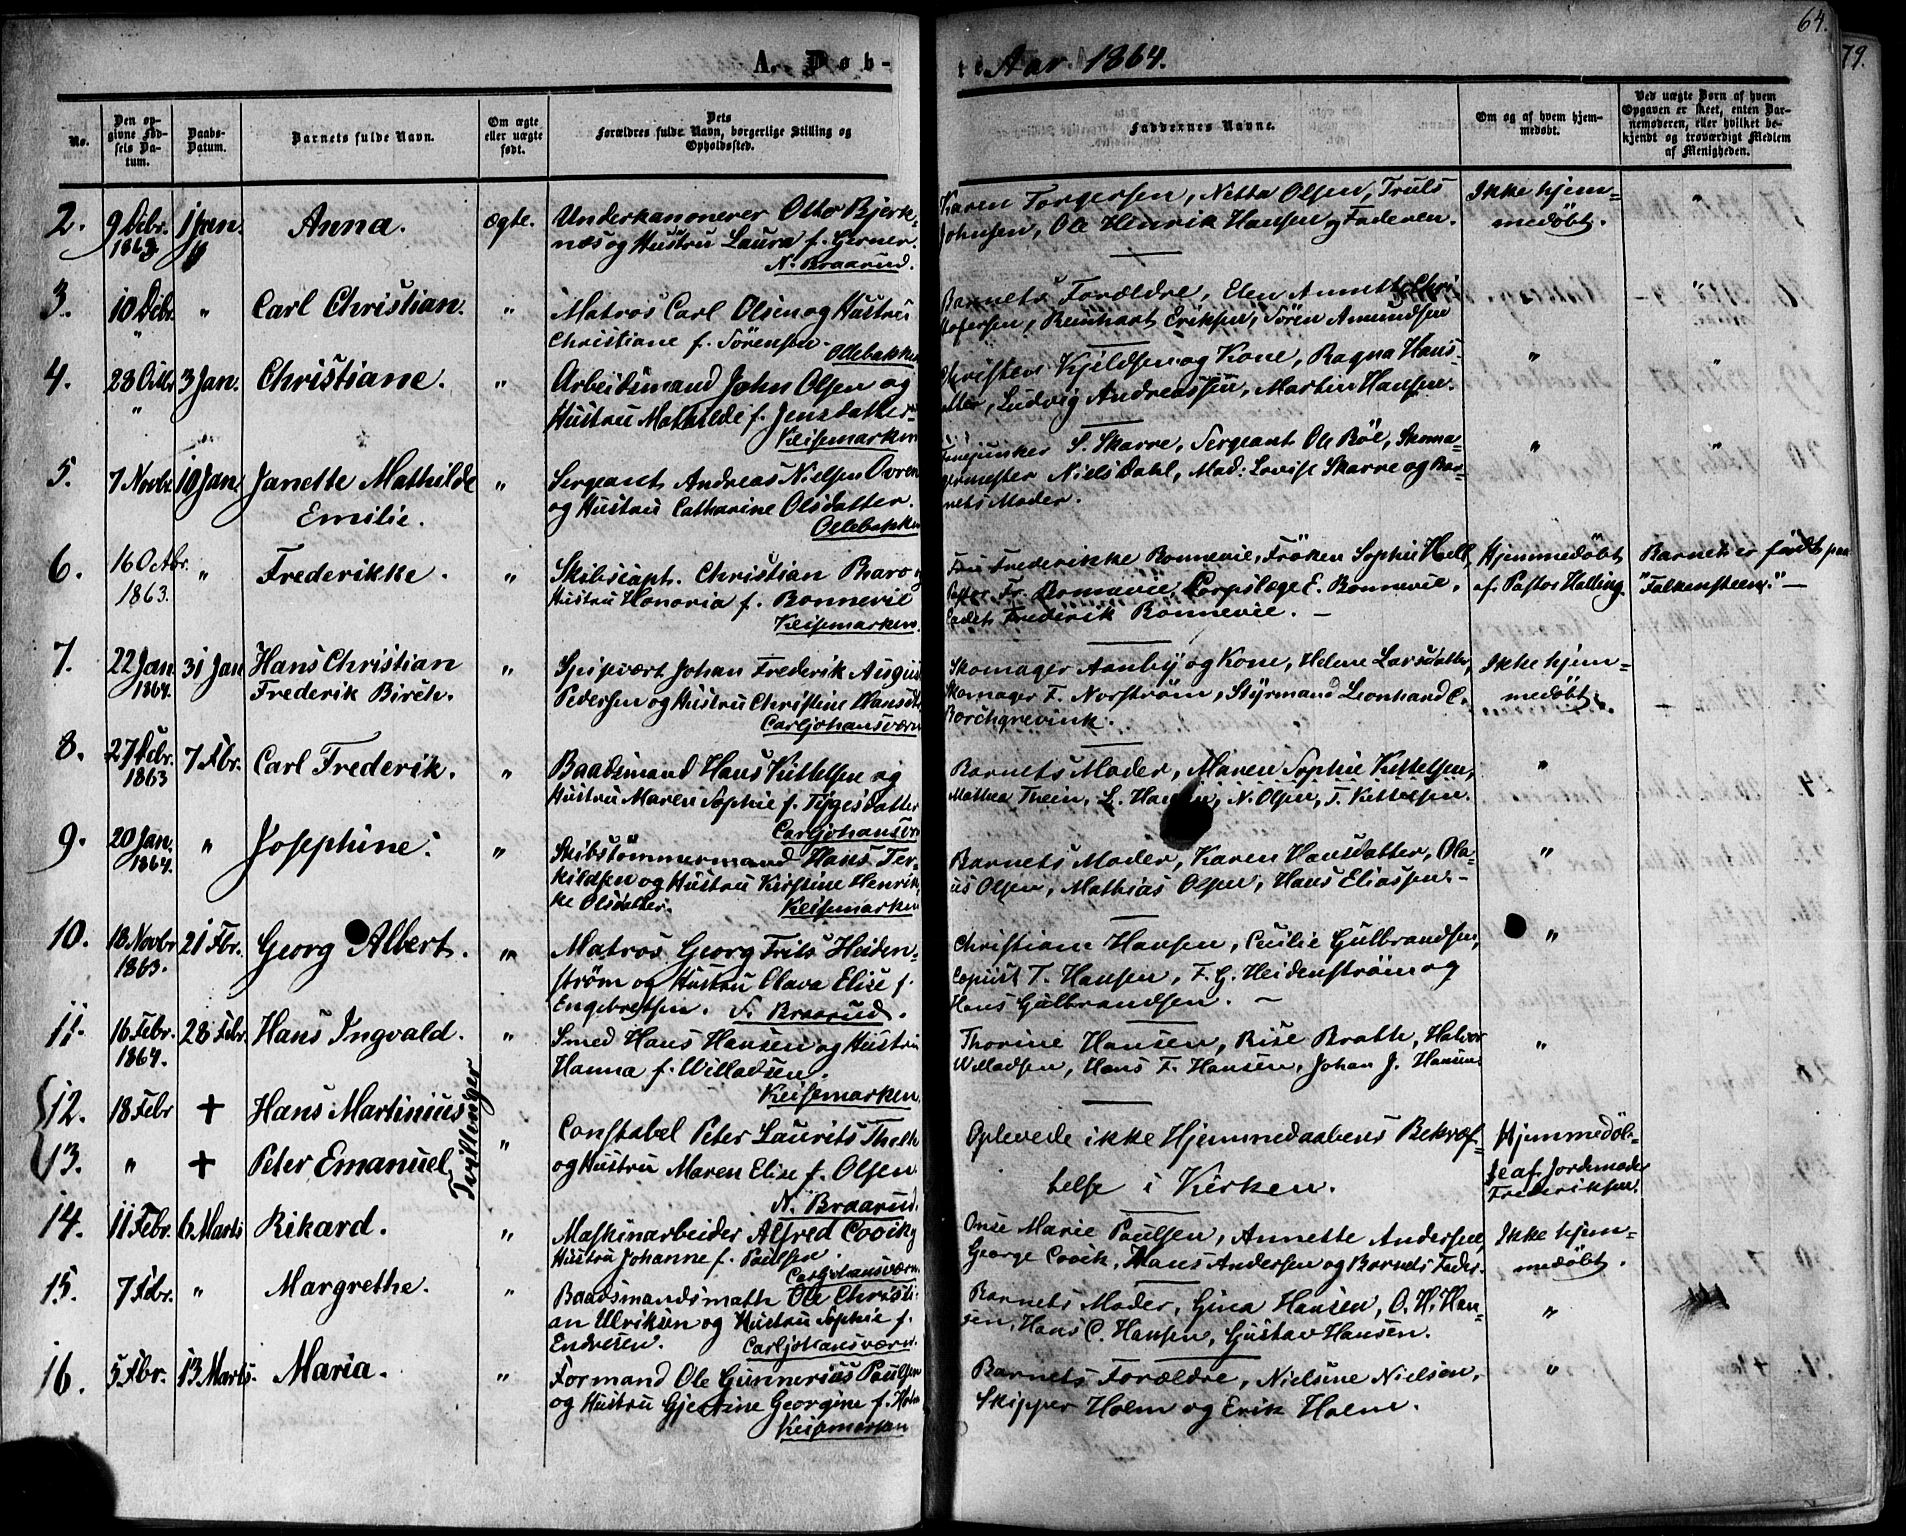 64.
79.
A. Døb-
te Aar 1864.
No.
Den op-
givne Fød-
sels Da-
tum.
Daabs-
Datum.
Barnets fulde Navn.
Om ægte
eller uægte
født.
Dets
Forældres fulde Navn, borgerlige Stilling og
Opholdssted.
Faddernes Navne.
Om og af hvem hjem-
medøbt.
Ved uægte Børn af hvem
Opgaven er skeet, enten Bar-
nemoderen, eller hvilket be-
kjendt og troværdigt Medlem
af Menigheden.
2. 9 Debr. 1 Jan. Anna. ægte. Underkanonerer Otter Bjerk-
1863
næs og Hustru Laura f. Gerner.
N. Braarud.
Karen Torgersen, Netta Olsen, Truls
Johnsen, Ole Henrik Hansen og Faderen.
Ikke hjem-
medøbt.
3. 10 Debr. " Carl Christian. " Matros Carl Olsen og Hustru
Christiane f. Sörensen.
Ollebakken
Barnets Forældre, Elen Annette Chri
stofersen, Reinhart Eriksen, Sören Amundsen
"
4. 28 3 Jan. Christiane. " Arbeidsmand John Olsen og
Hustru Mathilde f. Jensdatter
Keisemarken
Christen Kjeldsen og Kone, Ragna Hans-
datter, Ludvig Andreassen, Martin Hansen.
" "
5. 7 Novbr. 10 Jan. Janette Mathilde " Sergeant Andreas Nielsen Ovren
Emilie. og Hustru Catharine Olsdatter.
Ollebakken
S. Skarre, Sergeant Ole Böe, Skoma-
germester Niels Dahl, Mad: Lovise Skarre og Bar-
nets Moder.
" "
6. 16 Octbr. " Frederikke. " Skibscapt. Christian Baro og
1863. Hustru Honoria f. Bonnevie
Keisemarken.
Fru Frederikke Bonnevie, Fröken Sophie Hall,
Pastor Fr. Bonnevie, Corpslæge E. Bonnevie,
Cadet Frederik Bonnevie. —
Hjemmedøbt
af. Pastor Halling.
Barnet er født paa
"Falkensteen." —
7. 22 Jan. 31 Jan Hans Christian " Spisevært Johan Frederik August
1864. Frederik Birch. Pedersen og Hustru Christine Hansdtr
Carljohansværn
Skomager Aanby og Kone, Helene Larsdatter,
Skomager F. Norström, Styrmand Leonhard C.
Borchgrevink.
Ikke hjem-
medøbt.
8. 27 Debr. 7 Fbr. Carl Frederik. " Baadsmand Hans Kittelsen og
1863 Hustru Maren Sophie f. Tygesdatter
Carljohansvn
Barnets Moder, Maren Sophie Kittelsen,
Mathea Thein, L. Hansen, N. Olsen, T. Kittelsen.
"
9. 20 Jan. " Josephine. " Skibstömmermand Hans Ter-
1864. kildsen og Hustru Kirstine Henrik-
ke Olsdatter. Keisemarken
Barnets Moder, Karen Hansdatter, Ola-
us Olsen, Mathias Olsen, Hans Eliassen. —
"
10. 18 Novbr 21 Fbr. Georg Albert. " Matros Georg Frits Heiden-
1863. ström og Hustru Olava Elise f.
Engebretsen. S. Braarud.
Christiane Hansen, Cecilie Gulbrandsen,
Copiist T. Hansen, F. G. Heidenström og
Hans Gulbrandsen. —
"
11. 16 Febr. 28 Febr. Hans Ingvald. " Smed Hans Hansen og Hustru
1864. Hanna f. Willadsen.
Keisemarken.
Thorine Hansen, Bise Brath, Halvor
Willadsen, Hans F. Hansen, Johan J. Hansen
"
12. 18 Febr + Hans Martinius
13. " + Peter Emanuel
Tvillinger
" Constabel Peter Laurits Tholl
og Hustru Maren Elise f. Olsen
N. Braarud.
Oplevede ikke Hjemmedaabens Bekræf-
telse i Kirken.
Hjemmedøb-
te af Jordemoder
Frederiksen.
14. 11 Febr. 6 Marts Rikard. " Maskinarbeider Alfred Covik og
Hustru Johanne f. Paulsen.
Carljohansværn.
Marie Paulsen, Annette Andersen,
George Covik, Hans Andersen og Barnets Fader.
Ikke hjem-
medøbt.
15. 7 Fbr. " Margrethe. " Baadsmandsmath Ole Christi-
an Ulriksen og Hustru Sophie f.
Endresen. Carljohansværn.
Barnets Moder, Gina Hansen, O. H. Han-
sen, Hans C. Hansen, Gustav Hansen.
"
16. 5 Fbr. 13 Marts. Maria. " Formand Ole Gunnerius Paulsen
og Hustru Gjertine Georgine f. Holm
Keisemarken
Barnets Forældre, Nielsine Nielsen,
Skipper Holm og Erik Holm.
"